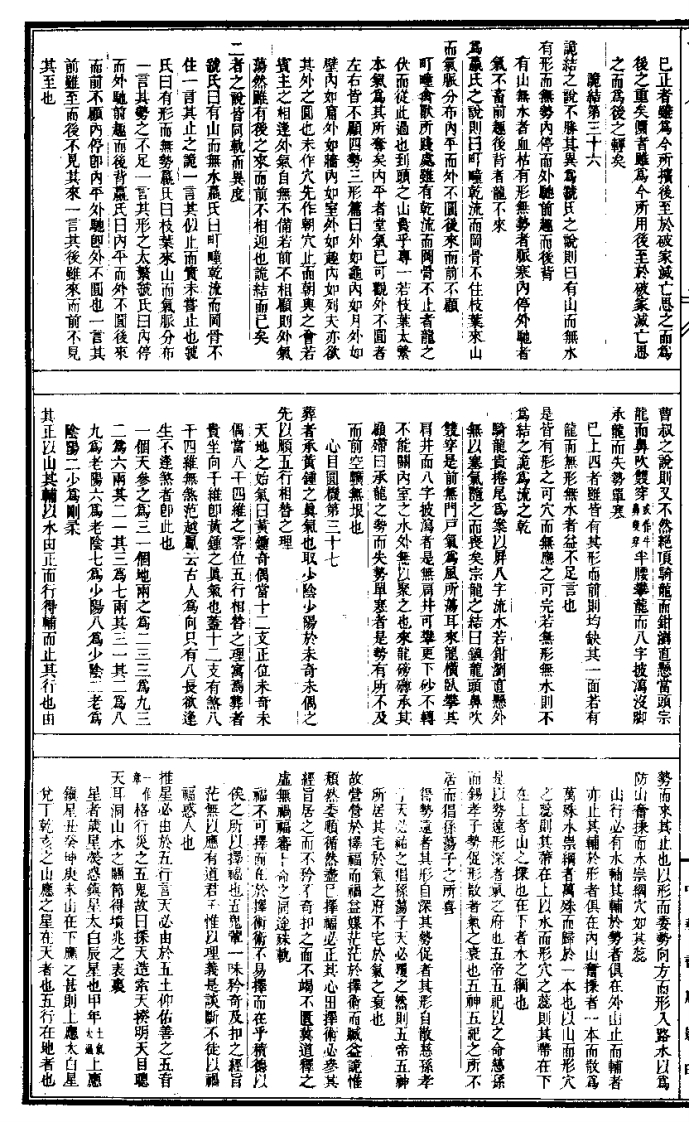 已止者雖爲今所擴後至於破家滅亡思之而爲
後之重矣儞者雖爲今所用後至於破家滅亡思
之而爲後之轉矣
詭結第三十六
詭結之說不勝其異爲虢氏之說則曰有山而無水
有形而無勢內停而外馳前趣而後背
有山無水者血枯有形無勢者脈塞內停外馳者
氣不畜前趣後背者龍不來
爲嬴氏之說則曰町疃乾流而岡骨不住枝葉來山
而氣脈分布內平而外不圓後來而前不顧
町疃禽獸所踐處雖有乾流而岡骨不止者龍之
伏而從此過也到頭之山貴乎專一若枝葉太繁
本氣爲其所奪矣內平者堂氣已可觀外不圓者
左右皆不顧四勢三形篇曰外如龜內如月外如
壁內如窟外如牆內如室外如趣內如列夫亦欲
其外之圓也未作穴先作朝穴止而朝與之會若
賓主之相逢外氣自無不備若前不相顧則外氣
蕩然雖有後之來而前不相迎也詭結而已矣
二者之說皆同軌而異度
虢氏曰有山而無水嬴氏曰町疃乾流而岡骨不
住一言其止之詭一言其似止而實未嘗止也虢
氏曰有形而無勢嬴氏曰枝葉來山而氣脈分布
一言其勢之不足一言其形之太繁虢氏曰內停
而外馳前趣而後背嬴氏曰內平而外不圓後來
而前不顧內停卽內平外馳卽外不圓也一言其
前雖至而後不見其來一言其後雖來而前不見
其至也
曹叔之說則又不然絕頂騎龍而鉗瀏直懸當頭宗
龍而鼻吹雙穿或作牛鼻雙穿半腰攀龍而八字披瀉沒脚
承龍而失勢單寒
已上四者雖皆有其形而前則均缺其一面若有
龍而無形無水者益不足言也
是皆有形之可穴而無應之可完若無形無水則不
爲結之詭爲流之乾
騎龍貴捲尾爲案以屏八字流水若鉗瀏直懸外
無以塞氣隨之而喪矣宗龍之結曰鎮龍頭鼻吹
雙穿是前無門戸氣爲風所蕩耳來龍橫臥攀其
肩井而八字披瀉者是無肩井可攀更下砂不轉
不能關內室之水外無以聚之也來龍磅礴承其
顧嘶曰承龍之勢而失勢單寒者是勢有所不及
而前空曠無垠也
心目圓機第三十七
葬者承黃鍾之眞氣也取少陰少陽於未奇未偶之
先以順五行相替之理
天地之始氣曰黃鍾奇偶當十二支正位未奇未
偶當八干四維之零位五行相替之理寓焉葬者
貴坐向干維卽黃鍾之眞氣也蓋十二支有煞八
干四維無煞范越鳳云古人爲向只有八長欲逢
生不逢煞者卽此也
一個天參之爲三一個地兩之爲二三三爲九三
二爲六兩其二一其三爲七兩其三一其二爲八
九爲老陽六爲老陰七爲少陽八爲少陰二老爲
陰陽二少爲剛柔
其正以山其輔以水由正而行得輔而止其行也由
勢而來其止也以形而委勢向方而形入路水以爲
防山奮揉而水崇綱穴如其蕊
山行必有水輔其輔於勢者俱在外山止而輔者
亦止其輔於形者俱在內山奮揉者一本而散爲
萬殊水崇綱者萬殊而歸於一本也以山而形穴
之蕊則其蒂在上以水而形穴之蕊則其蒂在下
在上者山之揉也在下者水之綱也
是以勢遠形深者氣之府也五帝五祀以之命慈孫
而錫孝子勢促形散者氣之衰也五神五祀之所不
居而猖孫蕩子之所喜
得勢遠者其形自深其勢促者其形自散慈孫孝
子天必祐之猖孫蕩子天必覆之然則五帝五神
所居其宅於氣之府不宅於氣之衰也
故營營於擇福而福益媒茫茫於擇術而賊益詭惟
頹然委順循然盡已擇福必正其心田擇術必參其
經旨居之而不矜不奇扣之而不竭不匱莫道釋之
虛無禍福審卜命之同途殊軌
福不可擇而在於擇術術不易擇而在乎積德以
俟之所以擇福也五鬼龍一味矜奇及扣之經旨
茫無以應有道君子惟以理義是談斷不徒以禍
福惑人也
推星必由於五行言天必由於五土仰佑善之五音
一作彰格行災之五鬼故曰探天造索天揆明天目聰
天耳洞山水之關節得墳兆之表裏
星者歲星熒惑鎮星太白辰星也甲年土氣太過上應
鎮星丑癸坤庚未山在下應之甚則上應太白星
兌丁乾亥之山應之星在天者也五行在地者也